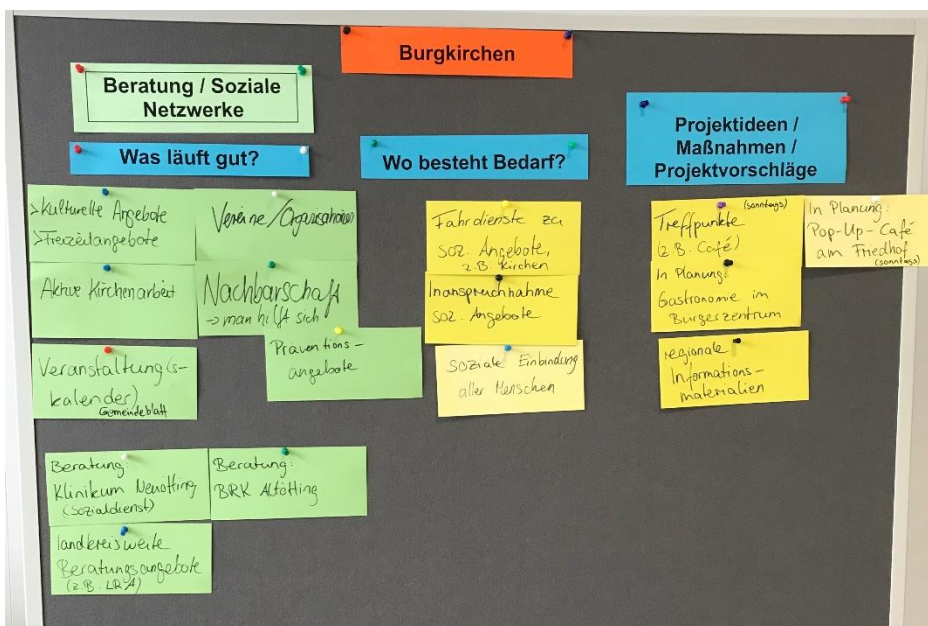 Burgkirchen
Beratung / Soziale
Netzwerke
Was läuft gut?
>Kulturelle Angebote
>Freizeitangebote
Vereine/Organisationen
Aktive Kirchenarbeit
Nachbarschaft
-> man hilft sich
Präventions-
angebote
Veranstaltung(s-
kalender)
Gemeindeblatt
Beratung:
Klinikum Neuötting
(Sozialdienst)
Beratung:
BRK Altötting
landkreisweite
Beratungsangebote
(z.B. LRA)
Wo besteht Bedarf?
Fahrdienste zu
soz. Angebote,
z.B. Kirchen
Inanspruchnahme
soz. Angebote
soziale Einbindung
aller Menschen
Projektideen /
Maßnahmen /
Projektvorschläge
(sonntags)
Treffpunkte
(z.B. Café)
In Planung:
Pop-Up-Café
am Friedhof
(sonntags)
In Planung:
Gastronomie im
Bürgerzentrum
regionale
Informations-
materialien